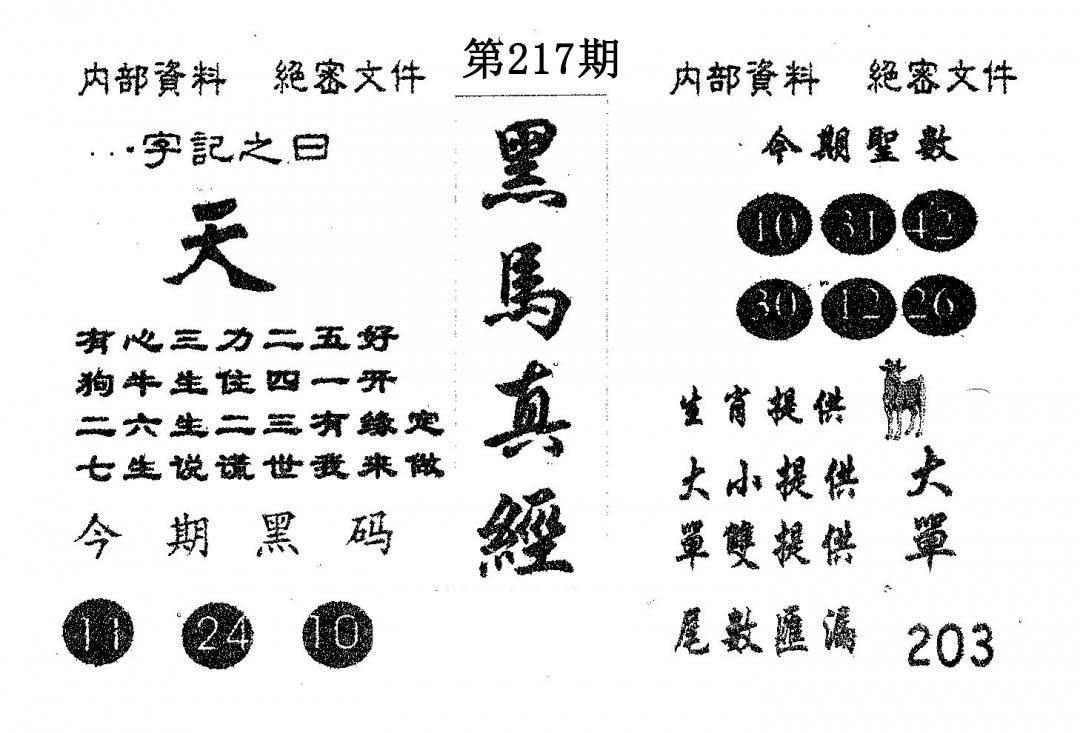 第217期
内部資料 絕密文件
…·字記之曰
天
有心三力二五好
狗牛生住四一开
二六生二三有缘定
七生说谎世我来做
今期黑码
11 24 10
黑馬真經
内部資料 絕密文件
今期聖數
10 31 42
30 12 26
生肖提供
大小提供 大
單雙提供 單
尾數匯漏 203